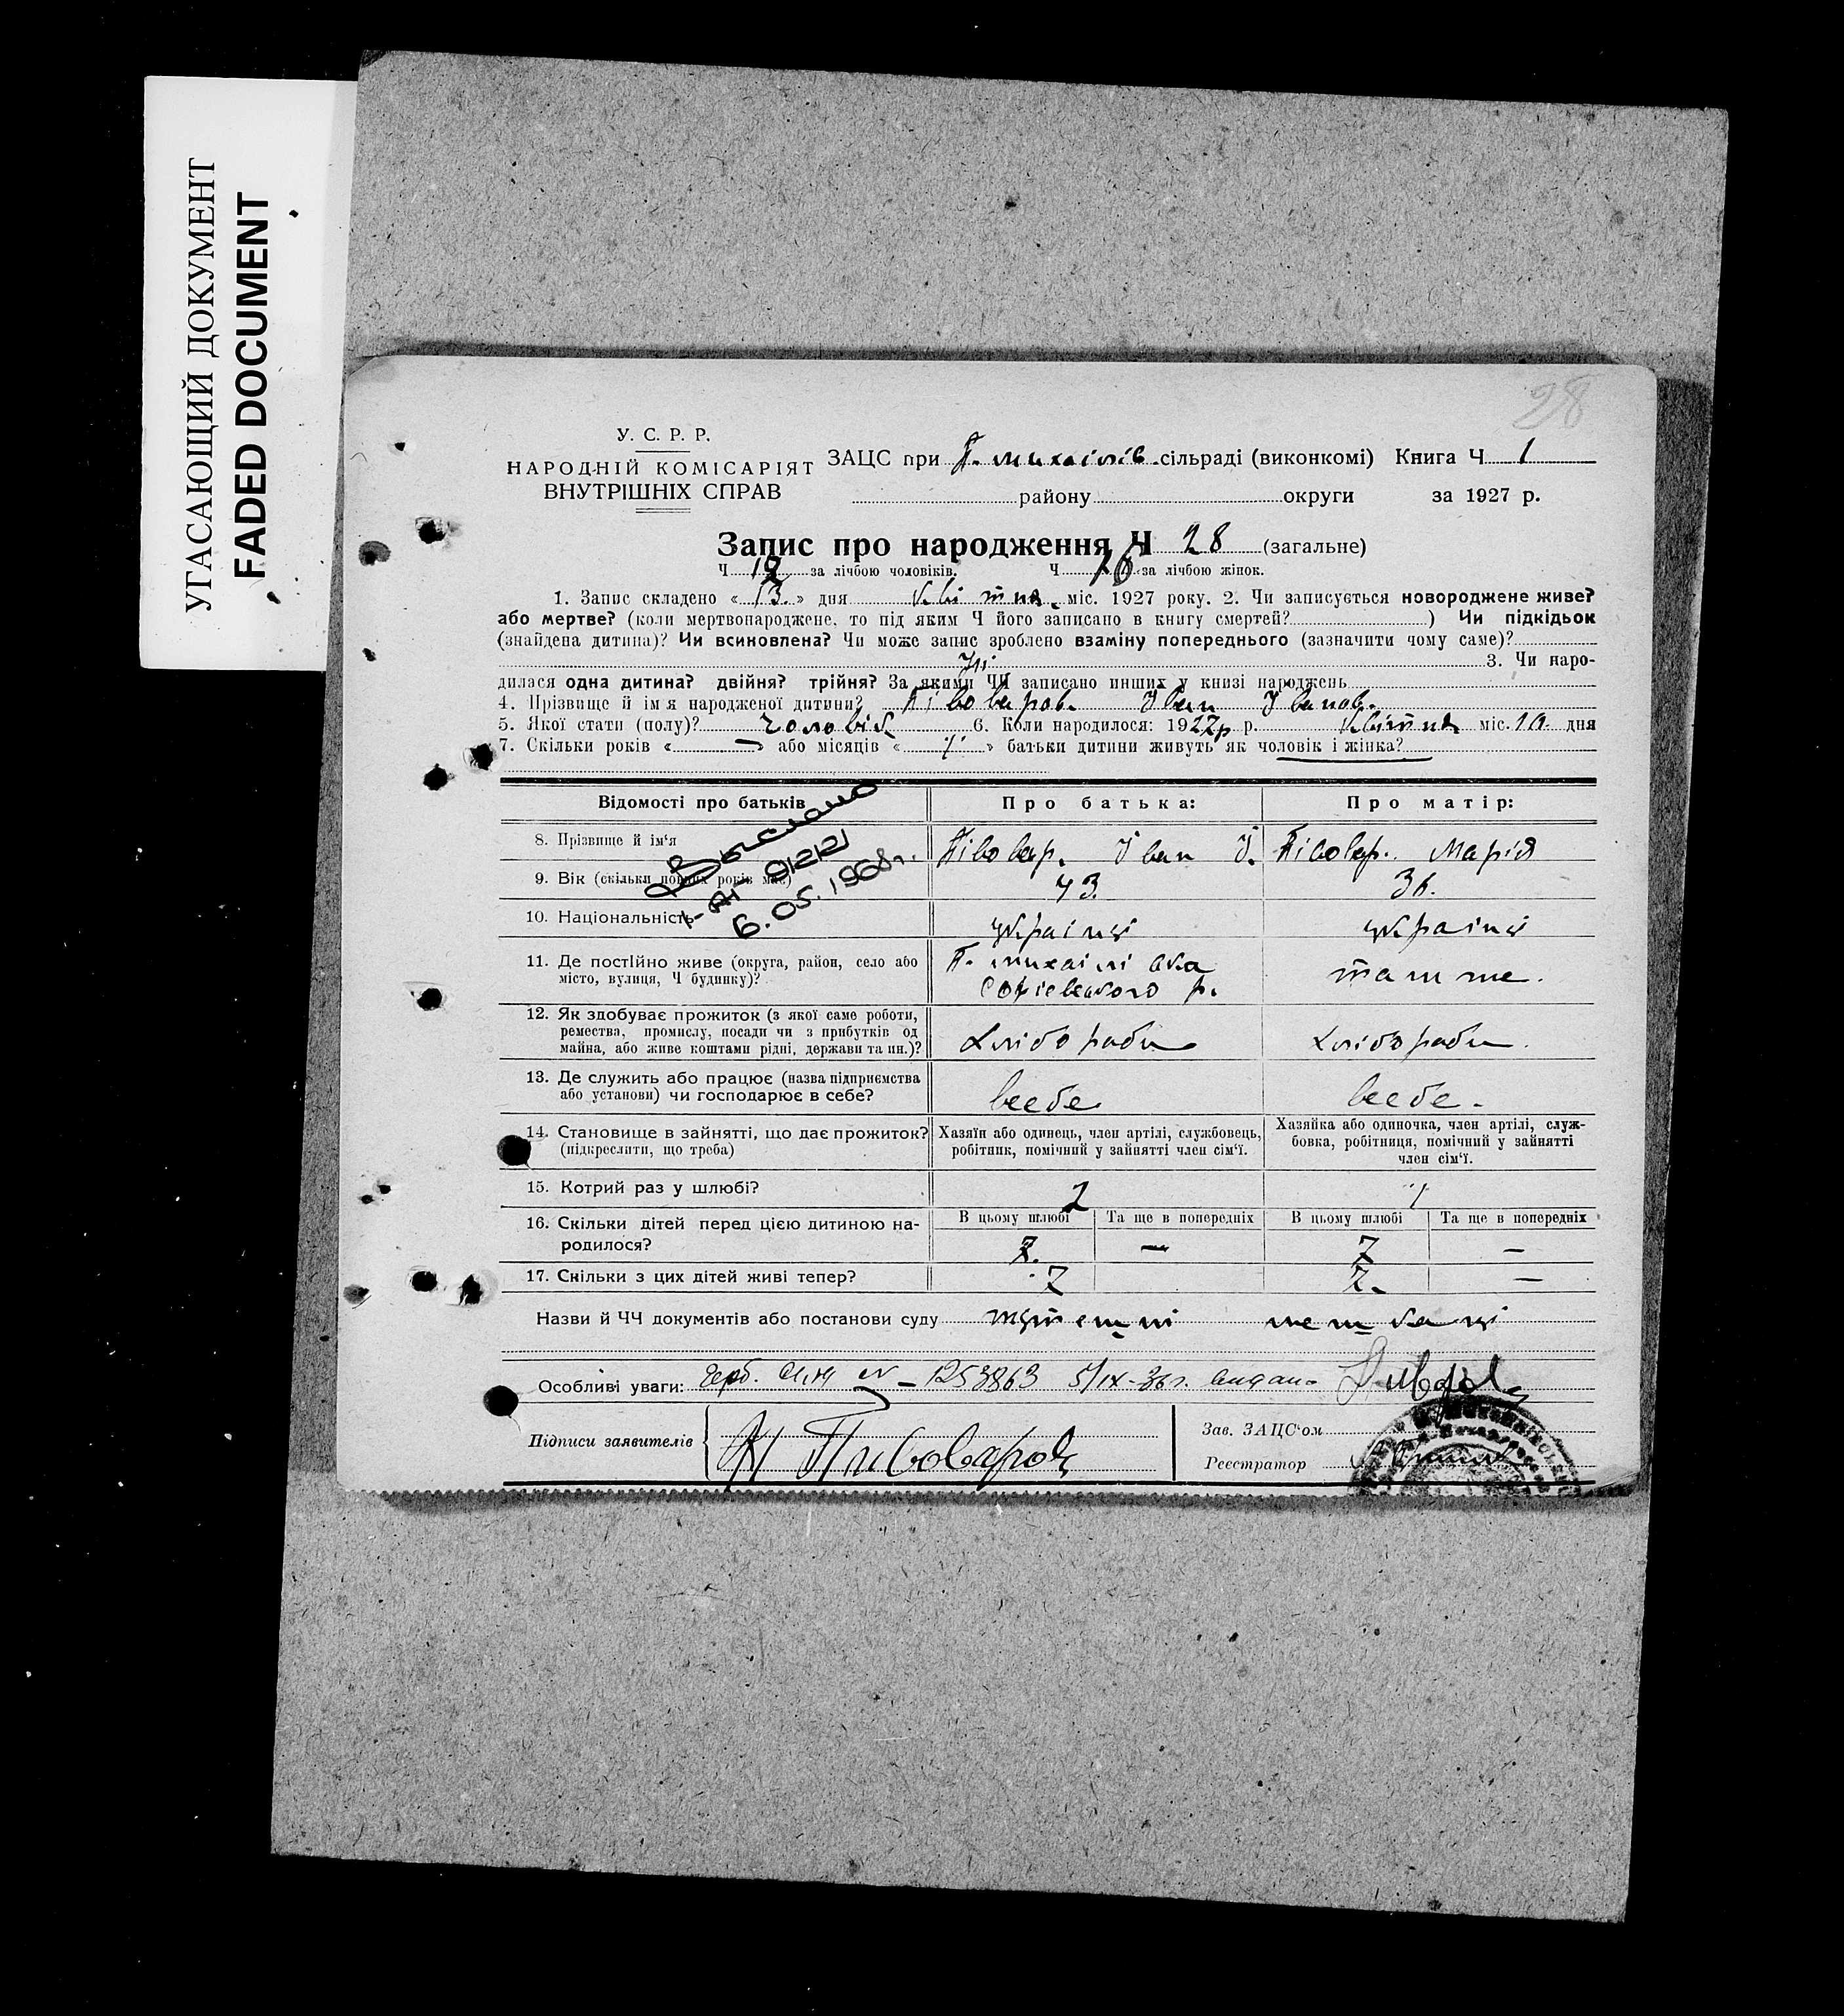 УГАСАЮЩИЙ ДОКУМЕНТ
FADED DOCUMENT
28
У. С. Р. Р.
НАРОДНІЙ КОМІСАРІЯТ
ВНУТРІШНІХ СПРАВ
ЗАЦС при П. михаілів. сільраді (виконкомі) Книга Ч 1
району округи за 1927 р.
Запис про народження Ч 28 (загальне)
Ч 12 за лічбою чоловіків. Ч 16 за лічбою жінок.
1. Запис складено «13.» дня квітня міс. 1927 року. 2. Чи записується новороджене живе?
або мертве? (коли мертвонароджене, то під яким Ч його записано в книгу смертей? ) Чи підкідьок
(знайдена дитина)? Чи всиновлена? Чи може запис зроблено взаміну попереднього (зазначити чому саме)?
Ні 3. Чи наро-
дилася одна дитина? двійня? трійня? За якими ЧЧ записано инших у книзі народжень
4. Прізвище й ім'я народженої дитини? Півоваров. Іван Іванов.
5. Якої стати (полу)? чоловік 6. Коли народилося: 1927р р. квітня міс. 10 дня
7. Скільки років « — » або місяців « ٪ » батьки дитини живуть як чоловік і жінка?
Відомості про батьків Про батька: Про матір:
8. Прізвище й ім'я Півовар. Іван І. Півовар. Марія
Выслано
9. Вік (скільки повних років має) 43. 36.
I-АГ 91221
6.05.1968г.
10. Національність українці українці
11. Де постійно живе (округа, район, село або
місто, вулиця, Ч будинку)? П. михаілівка
Софіевського р. там же.
12. Як здобуває прожиток (з якої саме роботи,
ремества, промислу, посади чи з прибутків од
майна, або живе коштами рідні, держави та ин.)? Хлібороби Хлібороби.
13. Де служить або працює (назва підприємства
або установи) чи господарює в себе? всебе всебе.
14. Становище в зайнятті, що дає прожиток?
(підкреслити, що треба)
Хазяїн або одинець, член артілі, службовець,
робітник, помічний у зайнятті член сім'ї.
Хазяйка або одиночка, член артілі, служ-
бовка, робітниця, помічний у зайнятті
член сім'ї.
15. Котрий раз у шлюбі? 2
В цьому шлюбі Та ще в попередніх В цьому шлюбі Та ще в попередніх
16. Скільки дітей перед цією дитиною на-
родилося? 7. — 7 —
17. Скільки з цих дітей живі тепер? 7 7. —
Назви й ЧЧ документів або постанови суду тутешні мешканці
Особливі уваги: 1253863 5/IX-36г.
Підписи заявителів Н Пивоваров
Зав. ЗАЦС'ом
Реєстратор